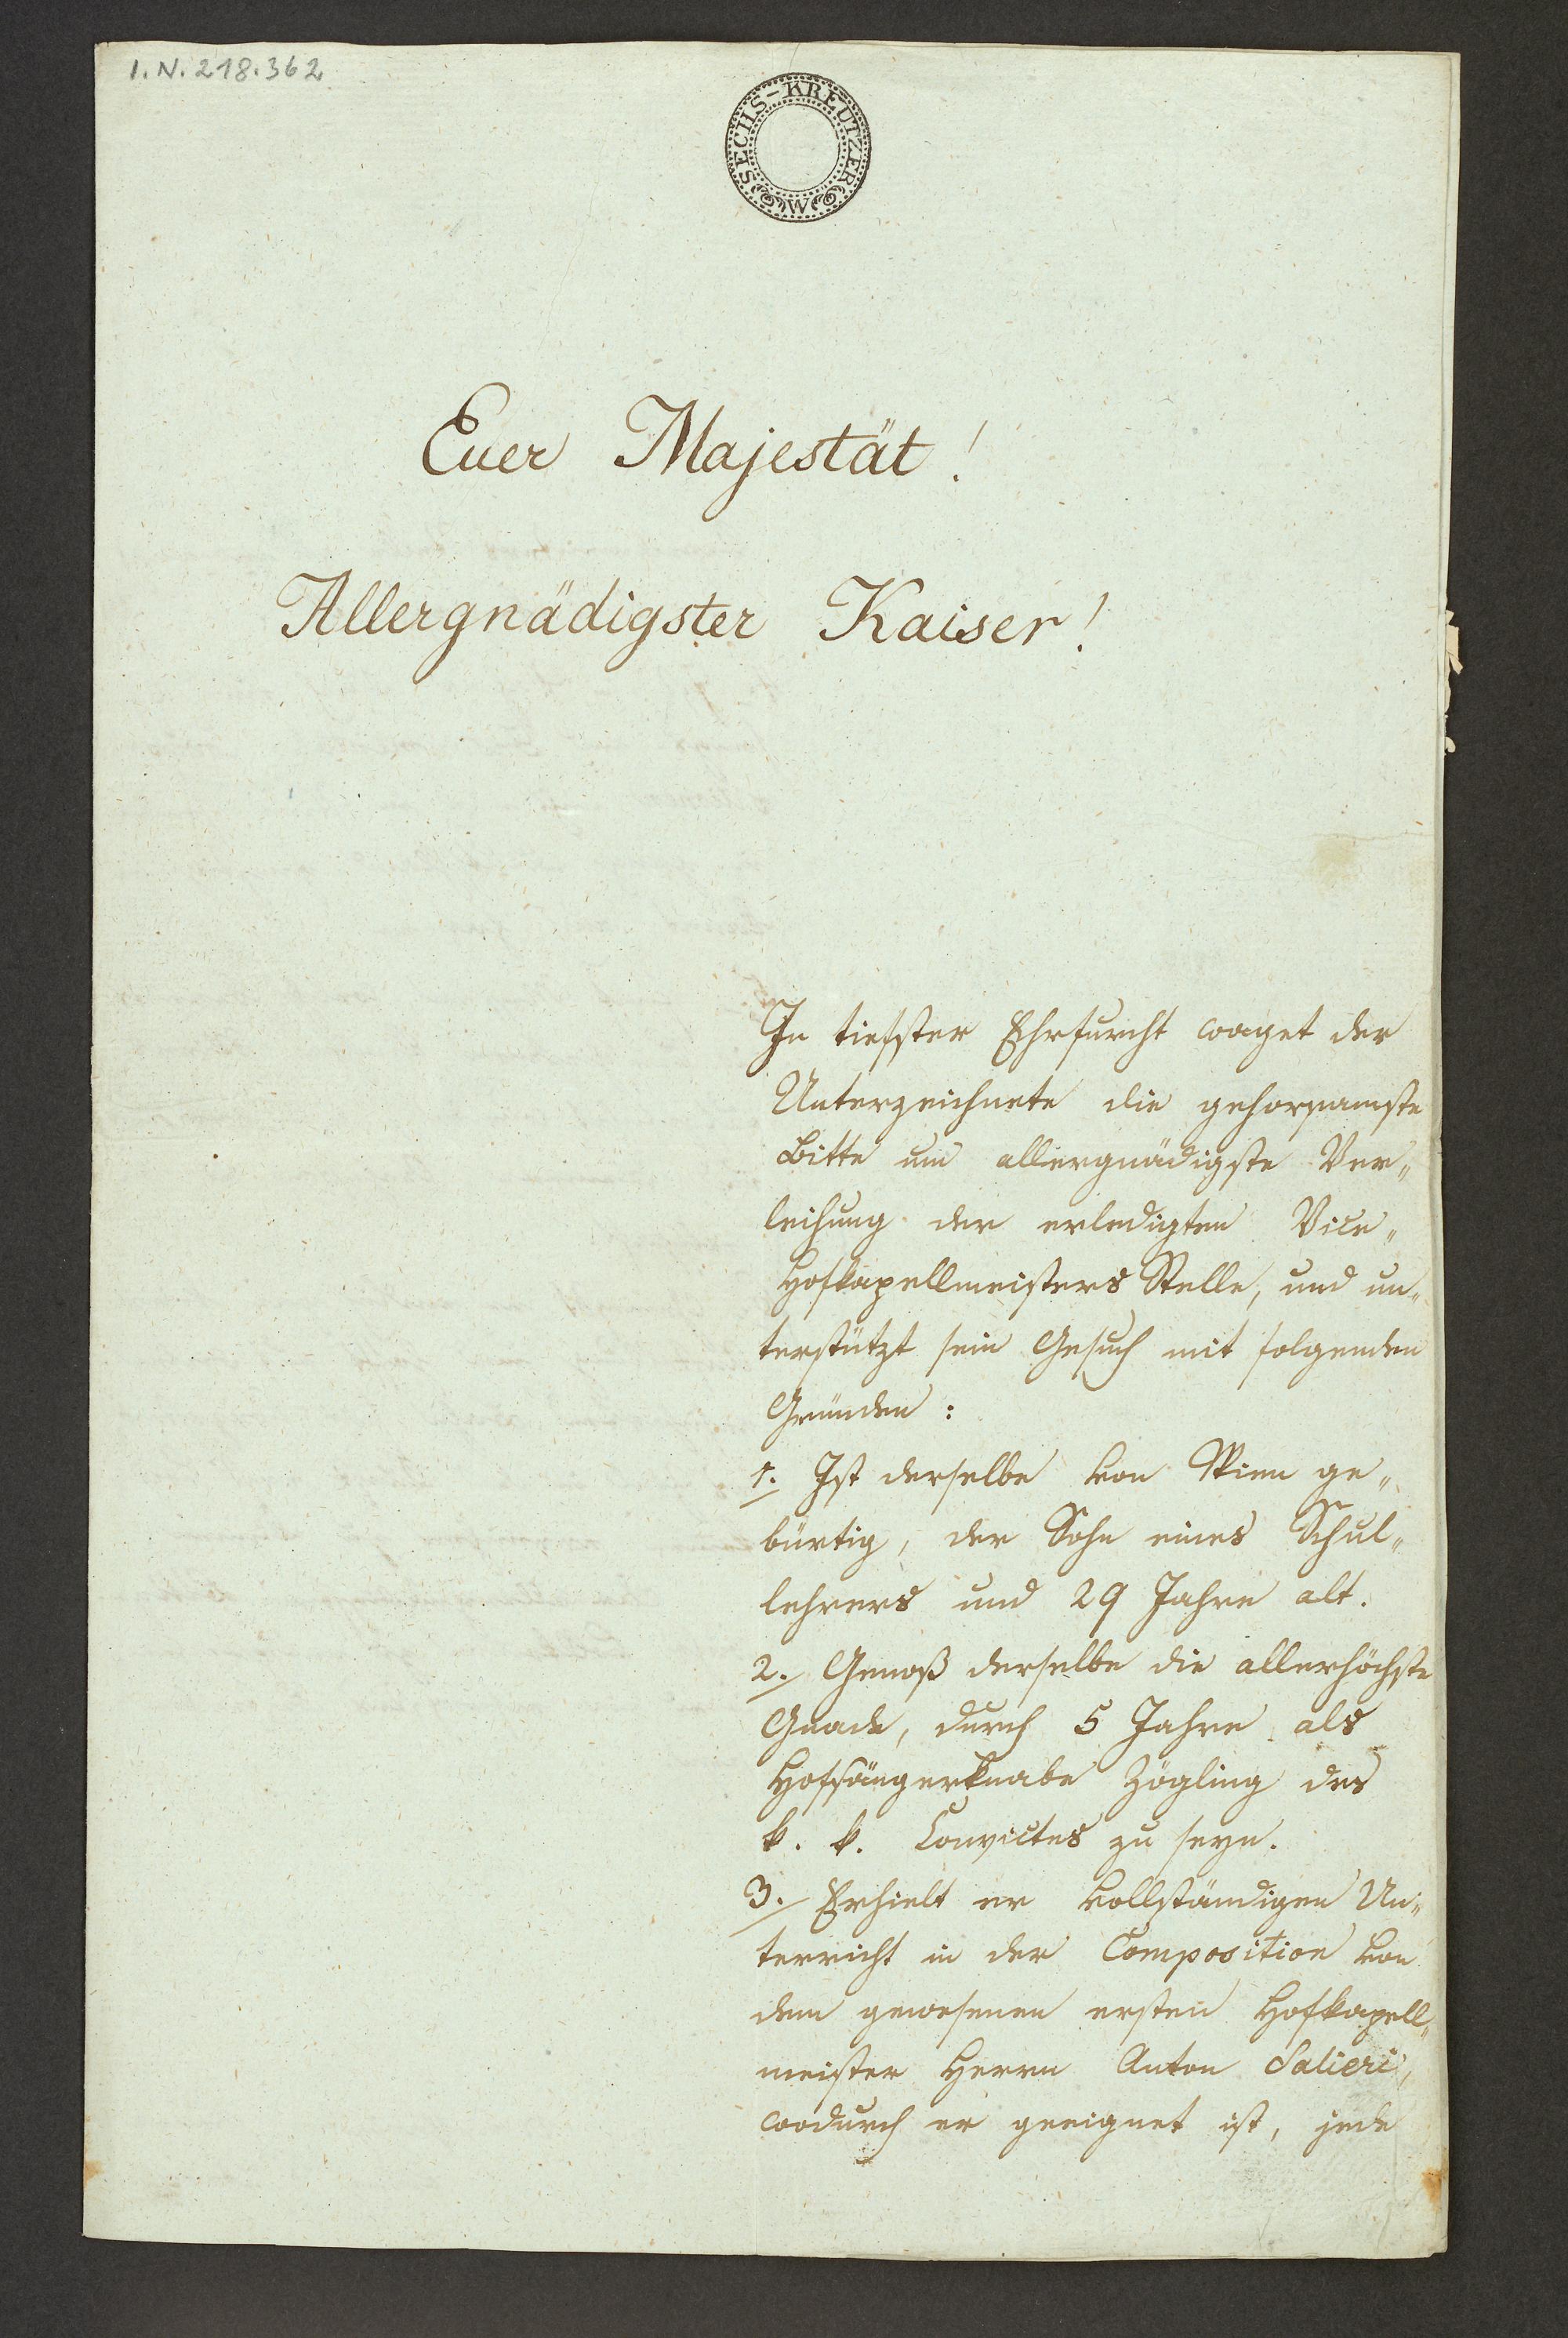 I.N. 218.362
SECHS-KREUTZER W
Euer Majestät!
Allergnädigster Kaiser!
In tiefster Ehrfurcht waget der
Unterzeichnete die gehorsamste
Bitte um allergnädigste Ver„
leihung der erledigten Vice„
Hofkapellmeisters Stelle, und un„
terstützt sein Gesuch mit folgenden
Gründen:
1. Ist derselbe von Wien ge„
bürtig, der Sohn eines Schul„
lehrers und 29 Jahre alt.
2. Genoß derselbe die allerhöchste
Gnade, durch 5 Jahre als
Hofsängerknabe Zögling des
k. k. Convictes zu seyn.
3. Erhielt er vollständigen Un„
terricht in der Composition von
dem gewesenen ersten Hofkapell„
meister Herrn Anton Salieri,
wodurch er geeignet ist, jede